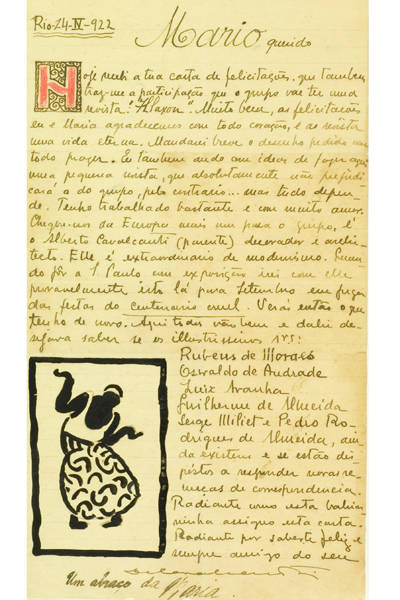 Rio-24-IV-922
Mario querido
Hoje recebi a tua carta de felicitações, que tambem
traz-me a participação que o grupo vae ter uma
revista: "Klaxon". Muito bem, as felicitacões
eu e Maria agradecemos com todo coração, e as revista
uma vida eterna. Mandarei breve o desenho pedido com
todo prazer. Eu tambem ando com ideas de fazer aqui
uma pequena revista, que absolutamente não prejudi-
cará a do grupo, pelo contrario... mas tudo depen-
de. Tenho trabalhado bastante e com muito amor.
Chegou-nos da Europa mais um para o grupo, é
o Alberto Cavalcanti (parente) decorador e archi-
tecto. Elle é extraordinario de modernismo. Quan-
do fôr a S. Paulo com exposição irei com elle
provavelmente isto lá para Setembro em fuga
das festas do centenario cruel. Verás então o que
tenho de novo. Aqui todos vão bem e dahi de-
sejava saber se os illustrissimos srs:
Rubens de Moraes
Oswaldo de Andrade
Luiz Aranha
Guilherme de Almeida
Serge Milliet e Pedro Ro-
drigues de Almeida, ain-
da existem e se estão dis-
postos a responder novas re-
mecas de correspondencia.
Radiante como esta bahia-
ninha assigno esta carta.
Radiante por saberte feliz e
sempre amigo do seu
Um abraço da Maria.